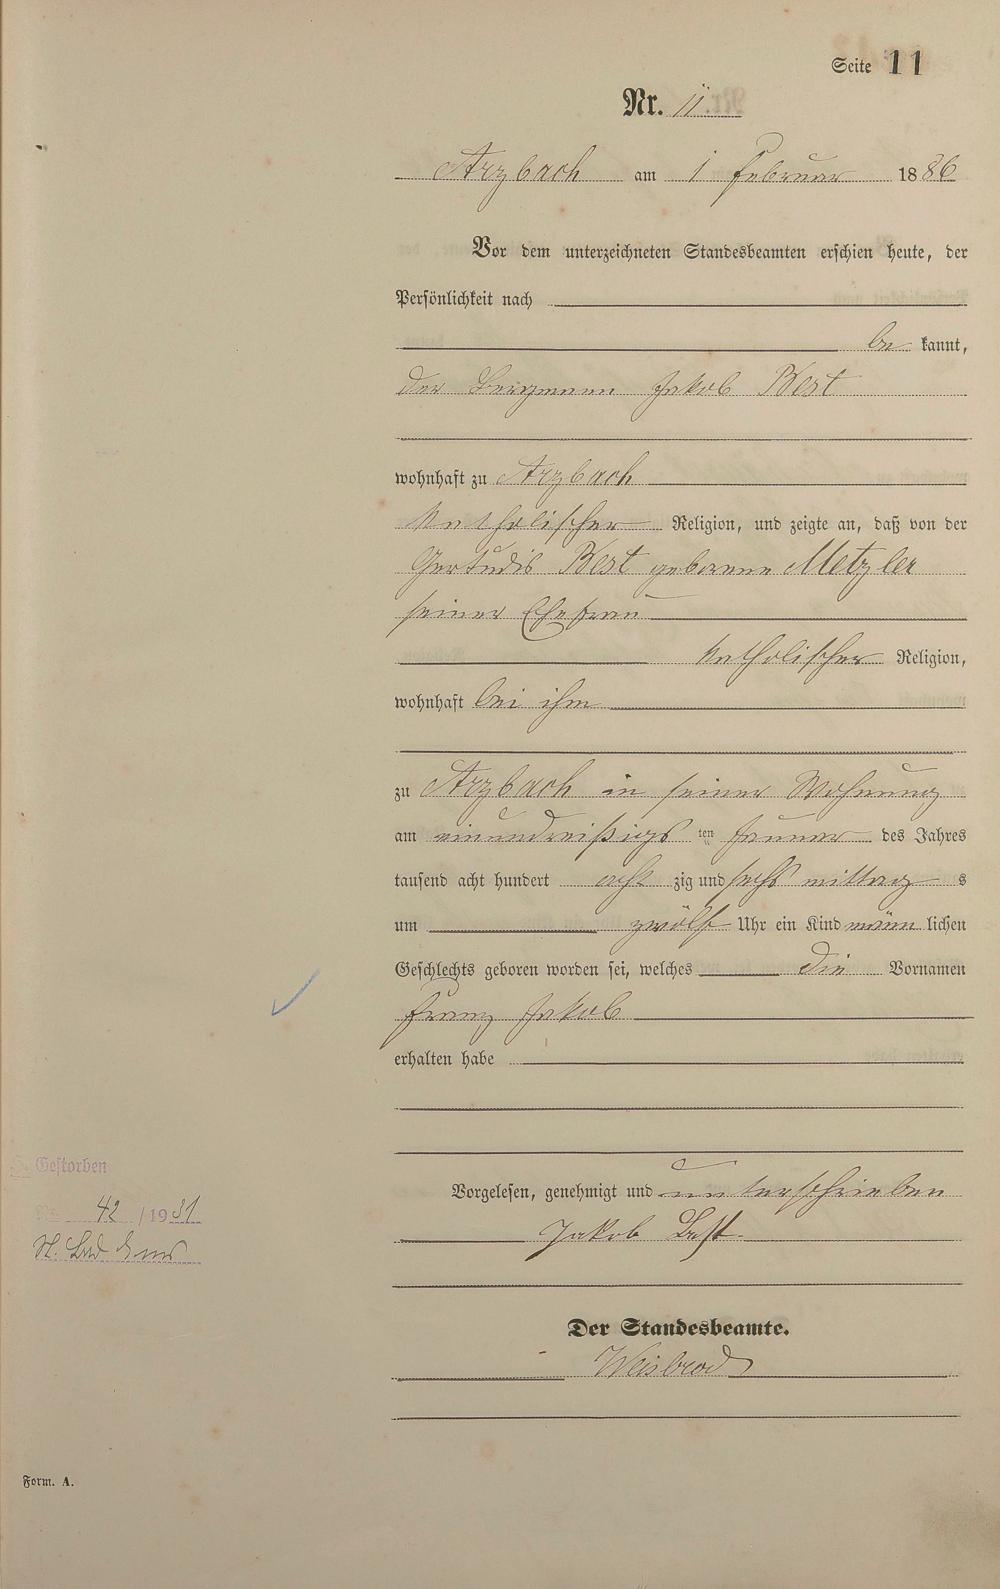 Seite 11
Nr. 11
Arzbach am 1 Februar 1886
Vor dem unterzeichneten Standesbeamten erschien heute, der
Persönlichkeit nach
be kannt,
der Bergmann Jakob Best
wohnhaft zu Arzbach
katholischer Religion, und zeigte an, daß von der
Gertrudis Best geborene Metzler
seiner Ehefrau
katholischer Religion,
wohnhaft bei ihm
zu Arzbach in seiner Wohnung
am einunddreißigsten Januar des Jahres
tausend acht hundert acht zig und sechs mittag s
um zwölf Uhr ein Kind männ lichen
Geschlechts geboren worden sei, welches die Vornamen
Franz Jakob
erhalten habe
Gestorben
Vorgelesen, genehmigt und unterschrieben
42 / 19
Jakob Best
St. Bad Ems
Der Standesbeamte.
Weisbrod
Form. A.